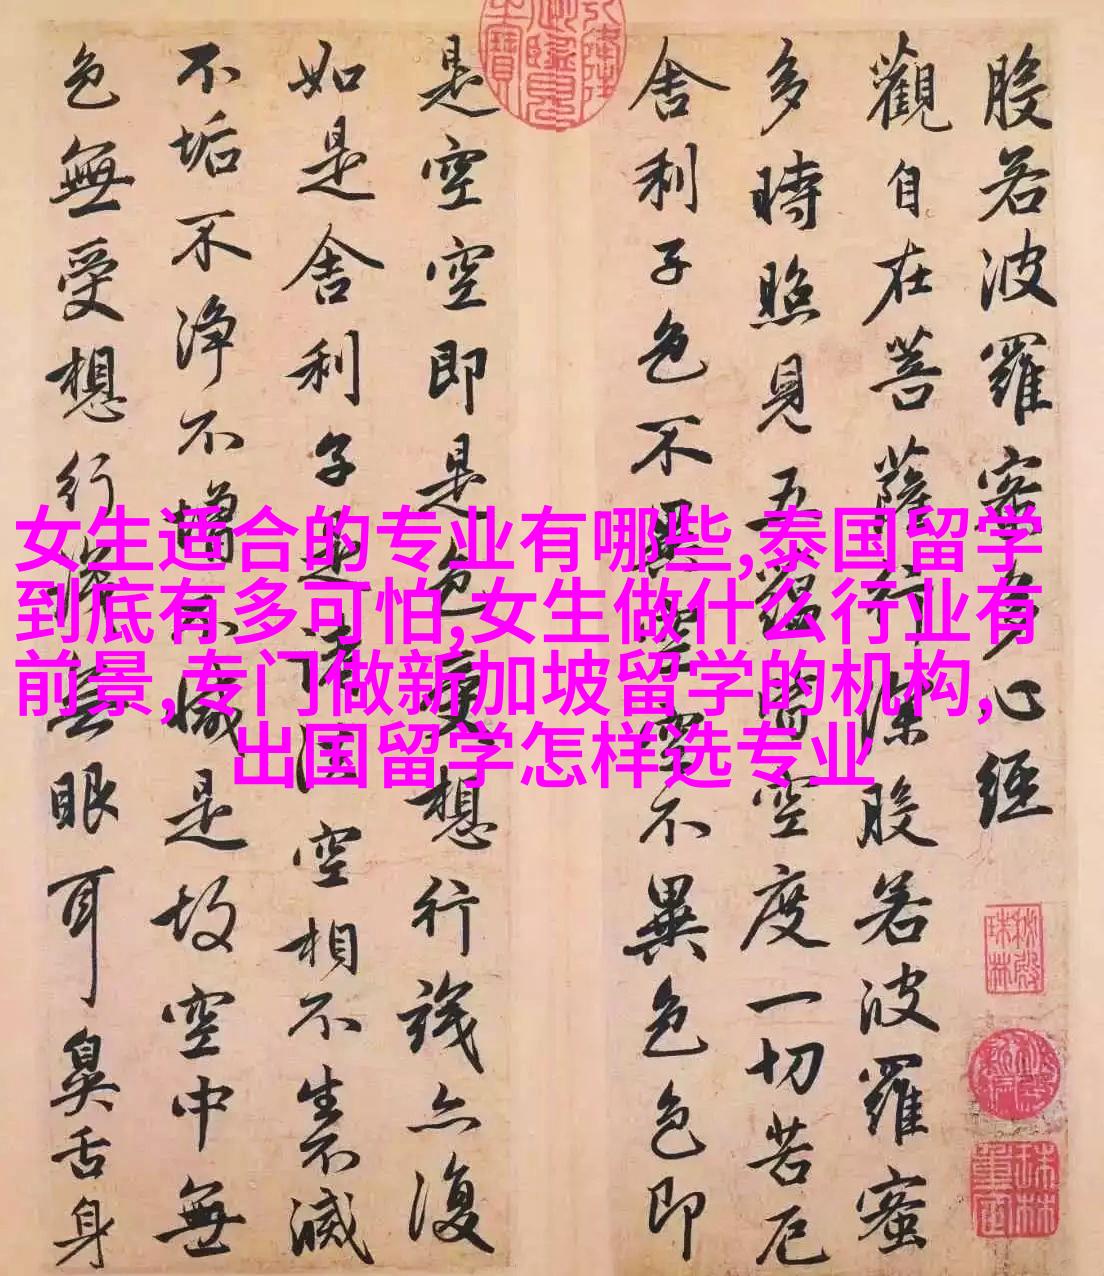 般若波羅密多心經
觀自在菩薩行深般若波羅蜜
多時照見五蘊皆空度一切苦厄
舍利子色不異空空不異色色即
是空空即是色受想行識亦復
如是舍利子是諸法空相不生不滅
不垢不淨不增不減是故空中無
色無受想行識無眼耳鼻舌身
秘殿
珠林
珠林
重定
女生适合的专业有哪些,泰国留学
到底有多可怕,女生做什么行业有
前景,专门做新加坡留学的机构,
出国留学怎样选专业